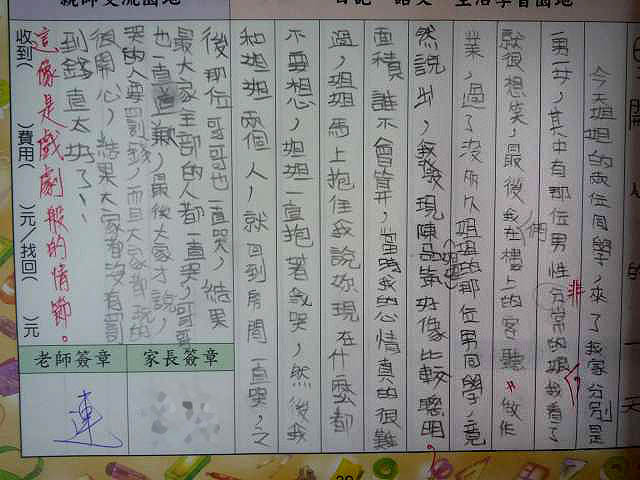 親師交流園地
日記、語文、生活學習園地
今天姐姐的幾位同學，來了我家分別是
一男一女，其中有那位男性非常的 我看了
就很想笑，最後我們在樓上的客聽，做作
業，過了沒所久姐姐的那位男同學，竟
然說出，我發現陳 好像比較聰明，
面積誰不會算，當時我的心情真的很難
過，姐姐馬上抱住我說妳現在什麼都
不要想心，姐姐一直抱著我哭，然後我
和姐姐兩個人，就回到房間一直哭，之
後那位哥哥也一直哭，結果
最大家全部的人都一直哭，哥哥
也一直道歉，最後大家才說，
哭的人要罰錢，而且大家都玩的
很開心，結果大家都沒有罰
到錢真太好了、
這像是戲劇般的情節。
收到( )費用( )元/找回( )元
老師簽章
家長簽章
連